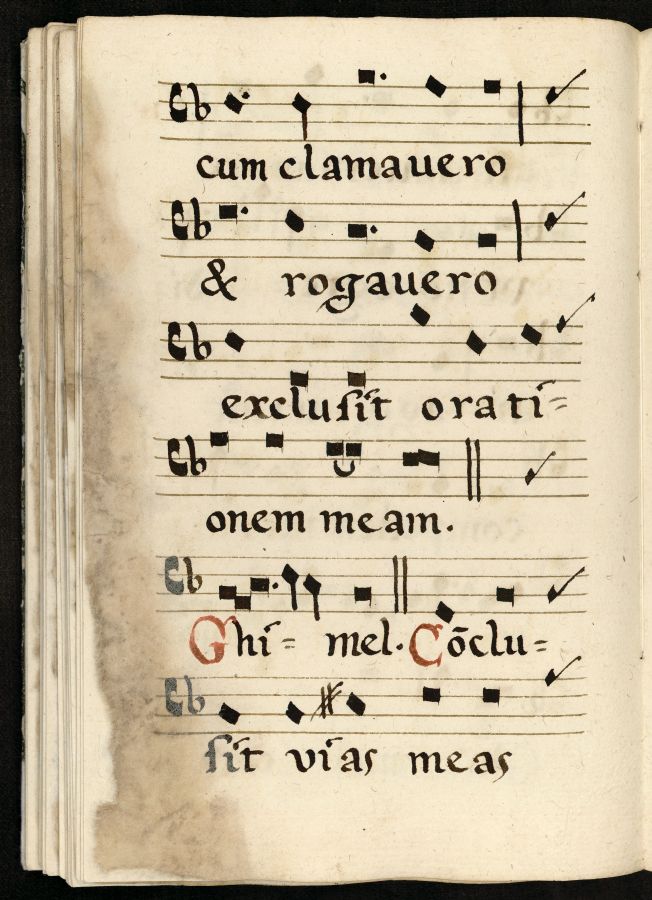 cum clamauero
& rogauero
exclusit orati=
onem meam.
Ghi= mel. Cõclu=
sit vias meas